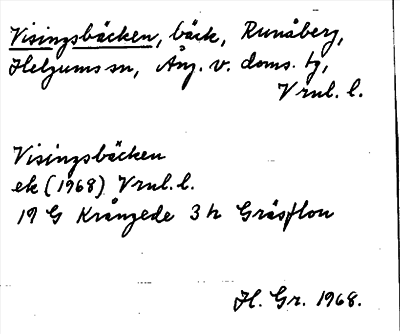 Visingsbäcken, bäck, Runåberg,
Helgums sn, Ång. v. doms. tg,
Vrnl. l.
Visingsbäcken
ek (1968) Vrnl. l.
19 G Krångede 3 h Gräsflon
H. Gr. 1968.